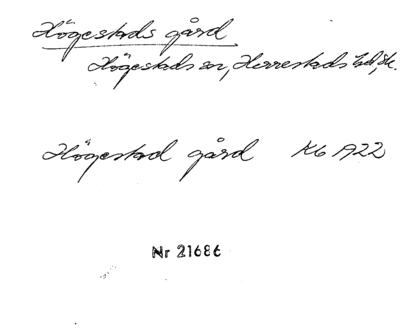 Högestads gård
Högestads sn, Herrestads hd, Sk.
Högestad gård Kb 1922
Nr 21686